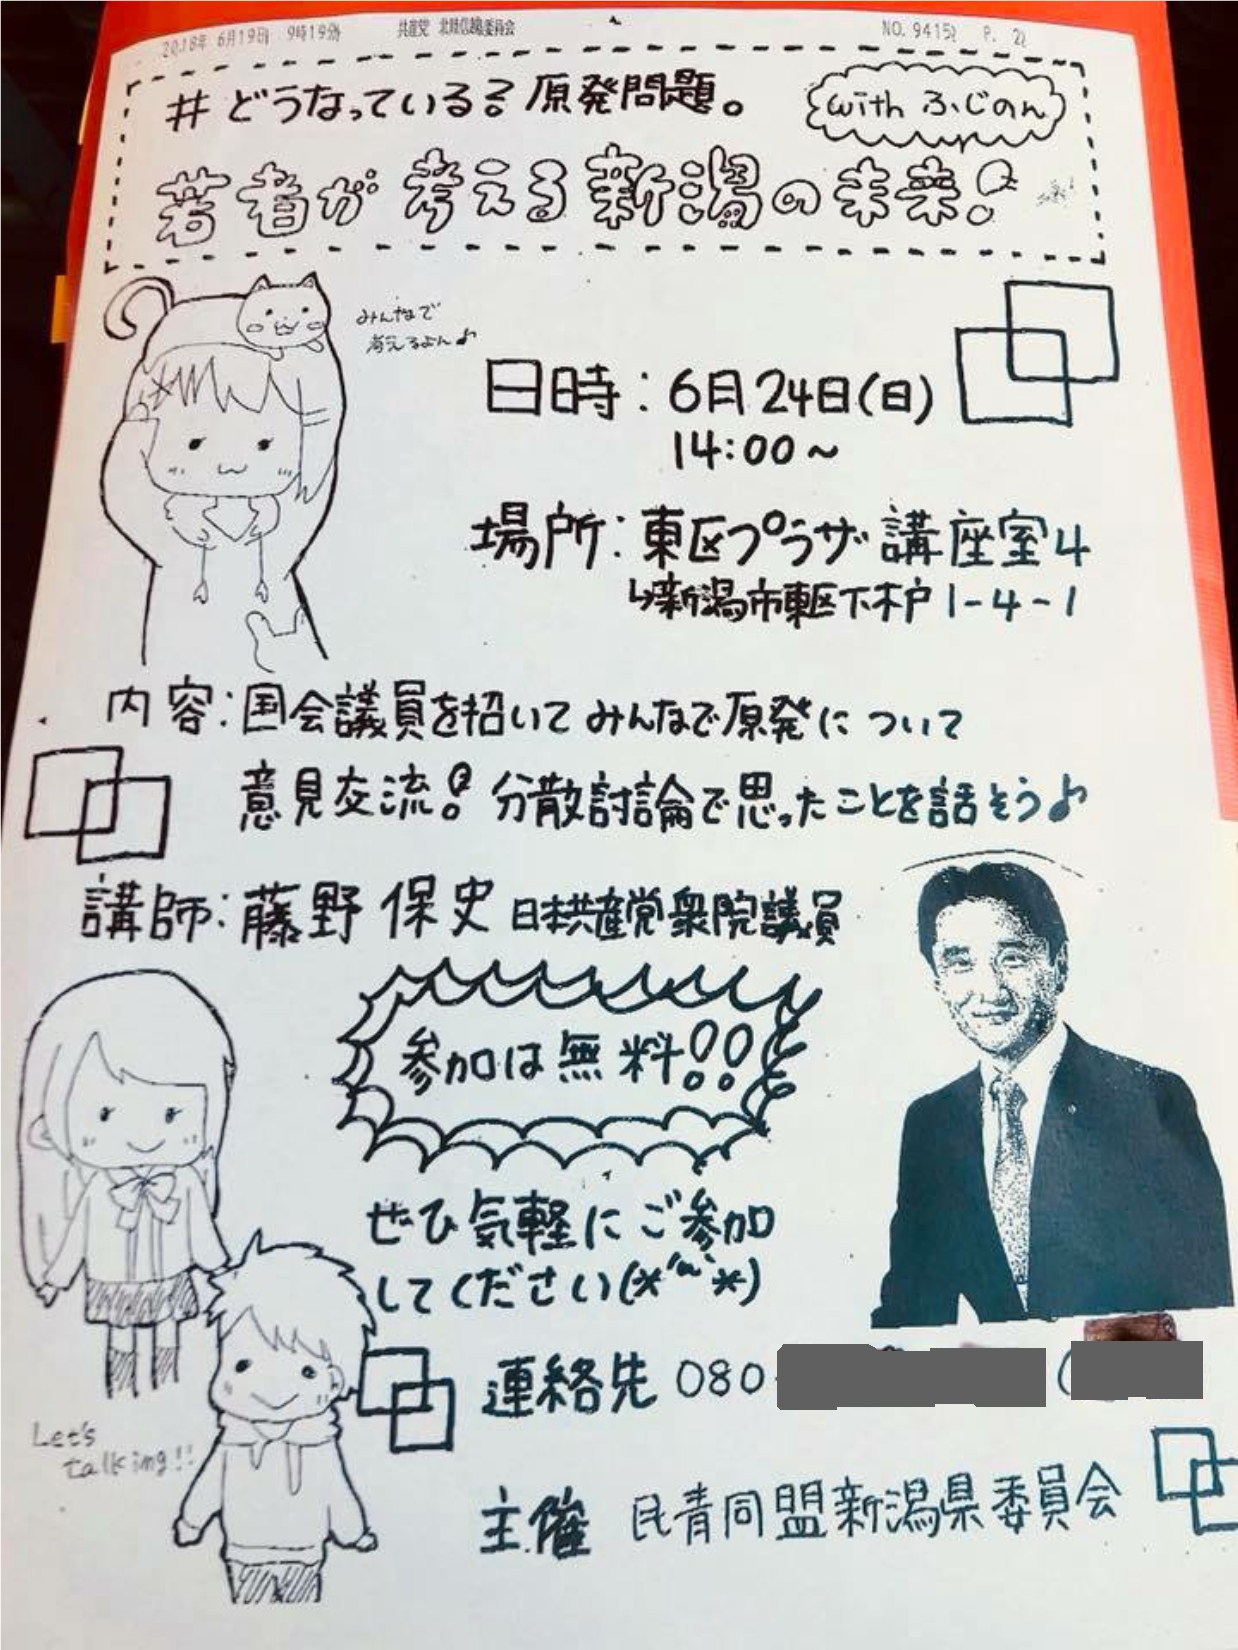 2018年 6月19日 9時19分 共産党 北陸信越委員会 NO. 9415 P. 2
#どうなっている?原発問題。
with ふじのん
若者が考える新潟の未来!
みんなで
考えるよん♪
日時:6月24日(日)
14:00~
場所:東区プラザ 講座室4
↳新潟市東区下木戸1-4-1
内容:国会議員を招いてみんなで原発について
意見交流!分散討論で思ったことを話そう♪
講師:藤野保史 日本共産党衆院議員
参加は無料!!
ぜひ気軽にご参加
してください(*´ω`*)
連絡先 080-
Let's
talking!!
主催 民青同盟新潟県委員会